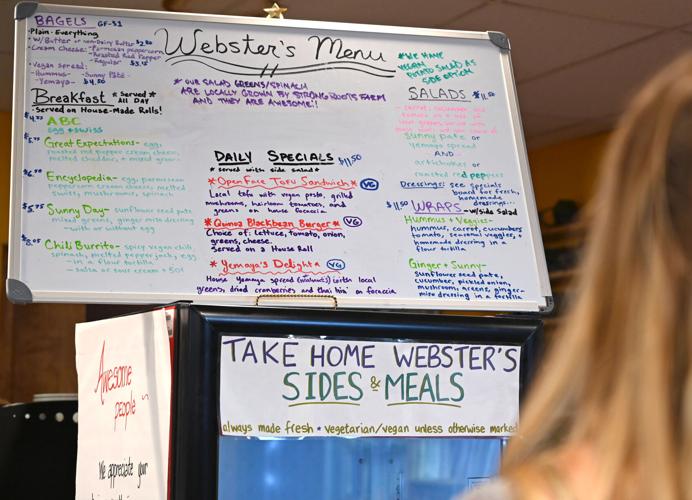 Webster's Menu
BAGELS GF-$1
-Plain -Everything
• w/Butter or non-Dairy Butter $2.80
• Cream Cheese: -Parmesan peppercorn
-Roasted Red Pepper
-Regular $3.75
• Vegan Spread:
-Hummus -Sunny Pâté
-Yemaya $4.50
Breakfast *Served* ALL DAY
• Served on House-Made Rolls!
ABC
egg + swiss
Great Expectations- egg,
roasted red pepper cream cheese,
melted cheddar, + mixed greens
Encyclopedia- egg, parmesan
peppercorn cream cheese, melted
swiss, mushrooms, spinach
$5.75 Sunny Day- sunflower seed pate
mixed greens, ginger miso dressing
-with or without egg
Chili Burrito- spicy vegan chili,
spinach, melted pepper jack, egg
-in a flour tortilla
-salsa or sour cream + 50¢
* OUR SALAD GREENS/SPINACH
ARE LOCALLY GROWN BY STRONG ROOTS FARM
AND THEY ARE AWESOME!!
DAILY SPECIALS $11.50
* served with side salad*
* Open Face Tofu Sandwich * VG
Local tofu with vegan pesto, grilled
mushrooms, heirloom tomatoes, and
greens on house focaccia
* Quinoa Blackbean Burger * VG
Choice of: lettuce, tomato, onion,
greens, cheese.
Served on a House Roll
* Yemaya's Delight * VG
House Yemaya spread (walnuts) with local
greens, dried cranberries and thai on focaccia
*WE HAVE
VEGAN
POTATO SALAD AS
SIDE OPTION
SALADS $11.50
sunny pate or
yemaya spread
AND
artichokes or
roasted red peppers
Dressings: see specials
board for fresh,
homemade
dressings...
$11.50 WRAPS -w/side Salad
Hummus + Veggies-
hummus, carrot, cucumbers
tomato, seasonal veggies, +
homemade dressing in a
flour tortilla
Ginger + Sunny-
sunflower seed pate,
cucumber, pickled onion,
mushroom, greens, ginger-
miso dressing in a tortilla
TAKE HOME WEBSTER'S
SIDES & MEALS
always made fresh * vegetarian/vegan unless otherwise marked
Awesome
people ~
We appreciate your